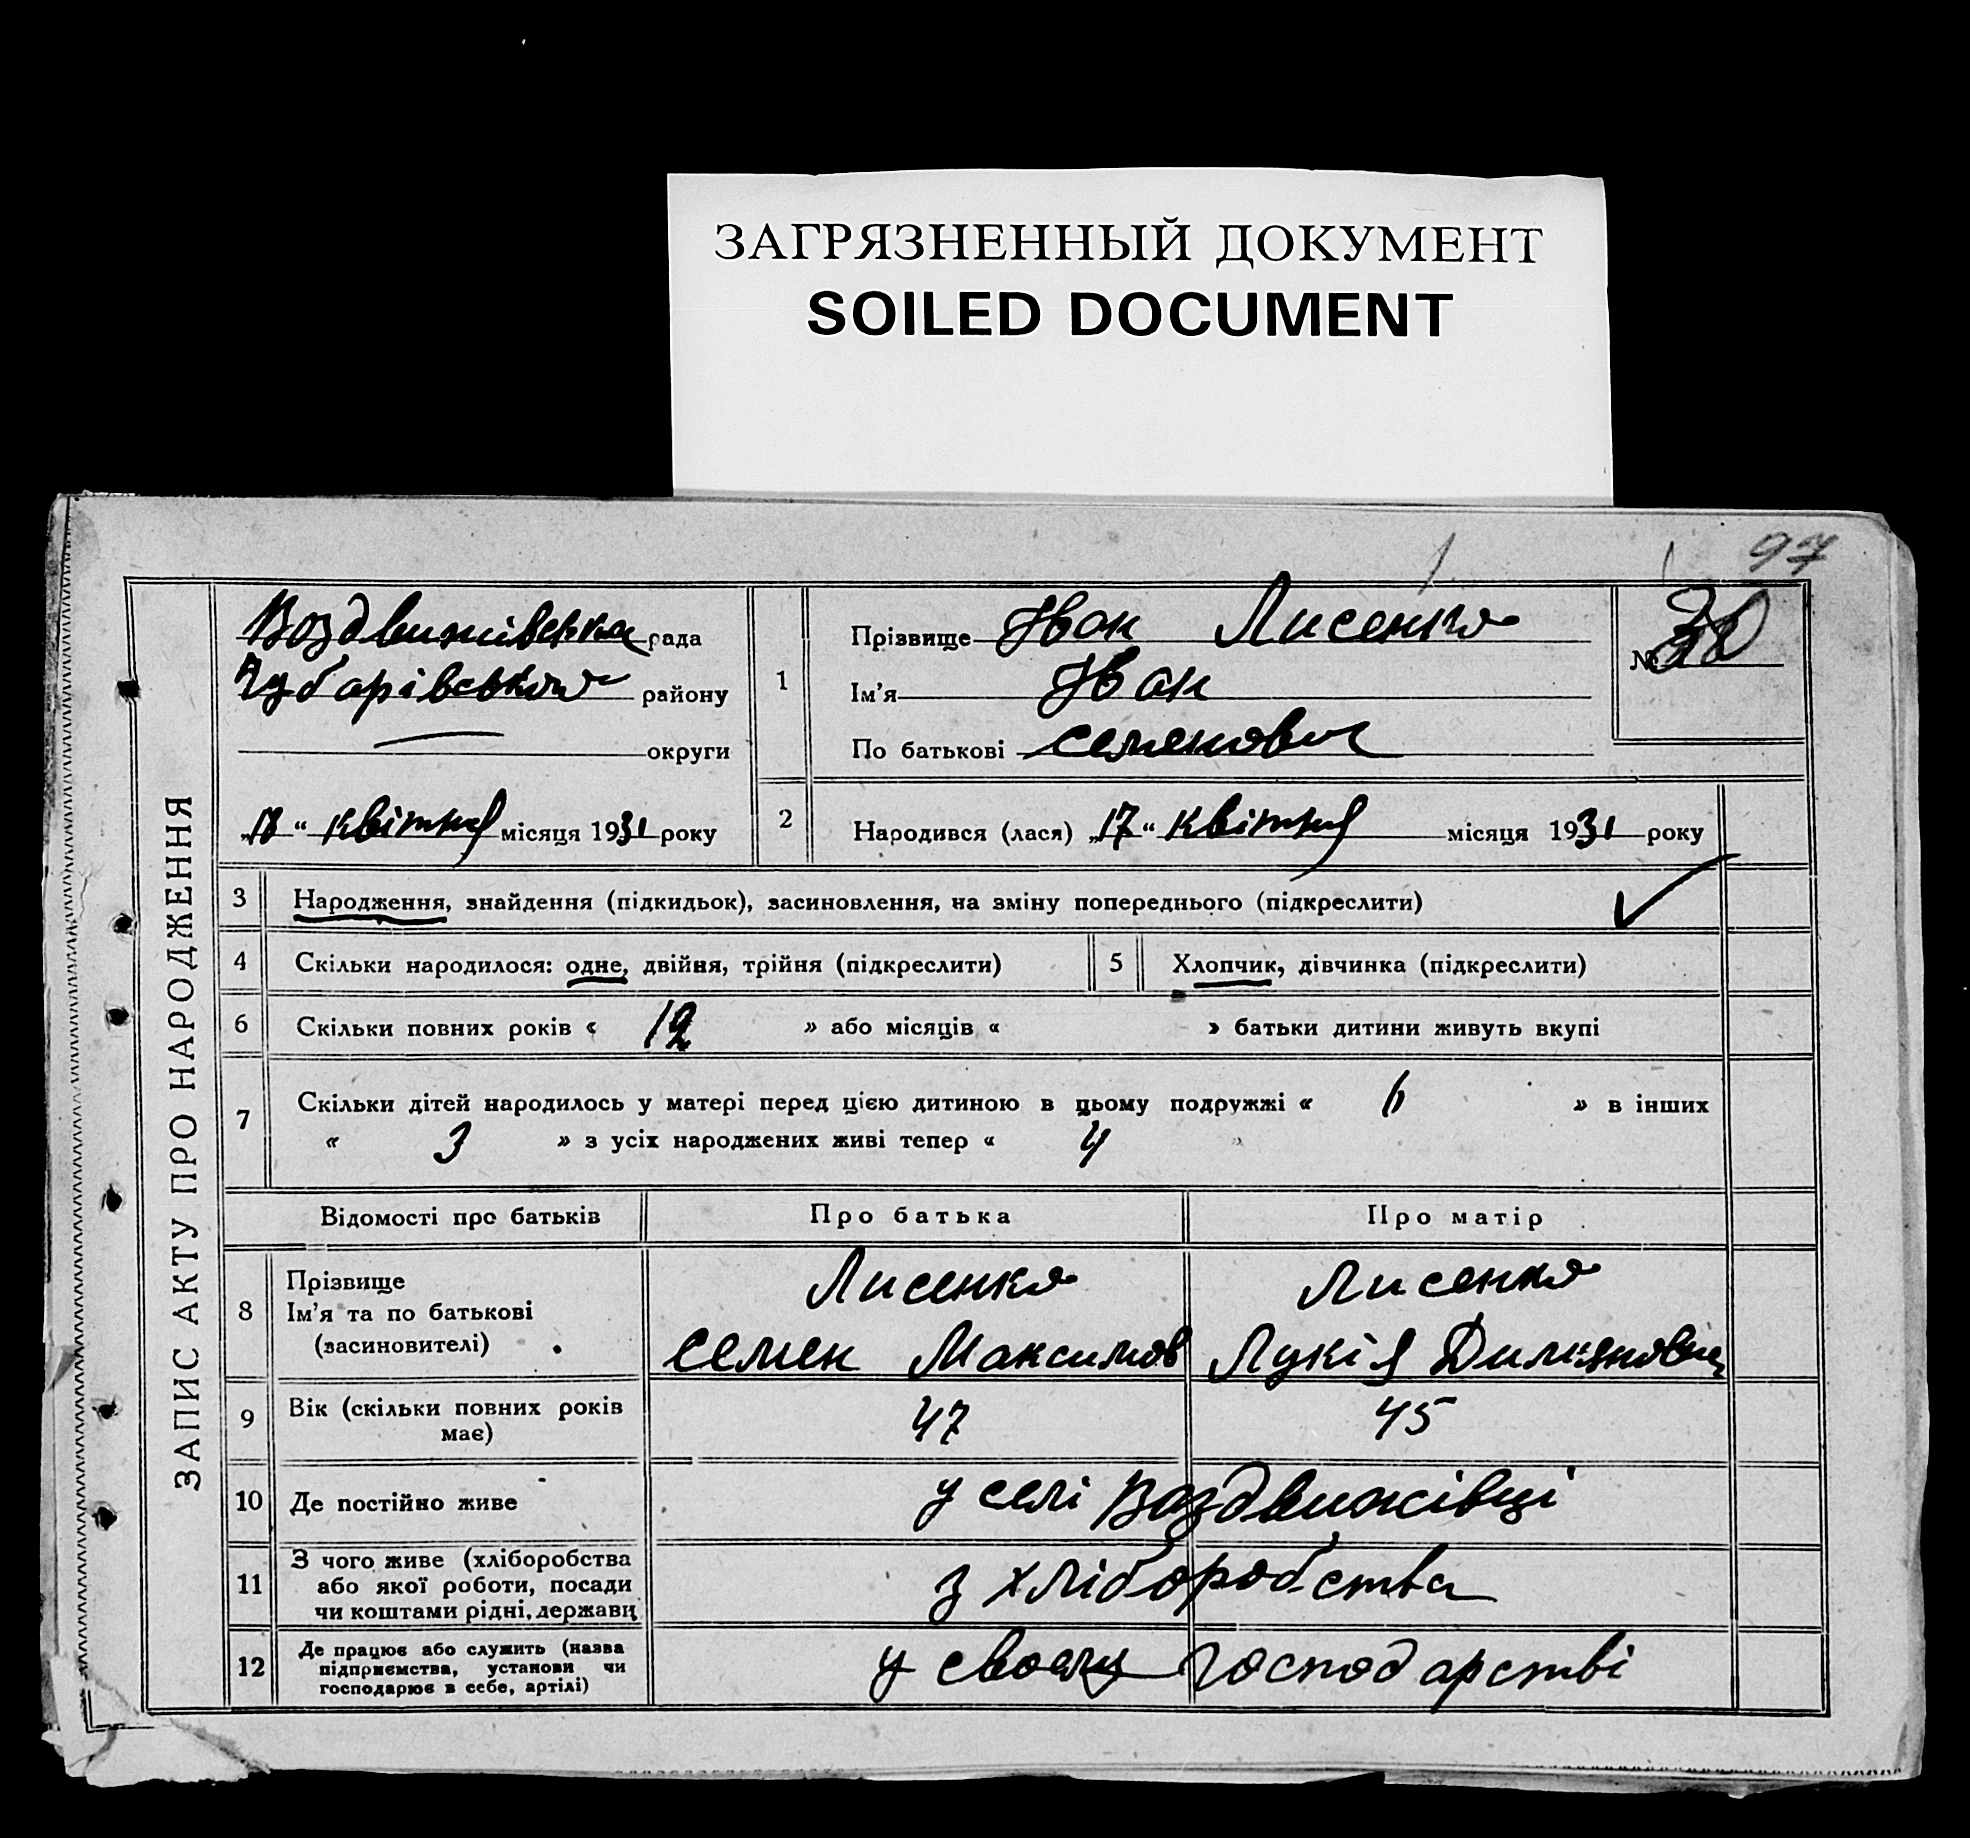 ЗАГРЯЗНЕННЫЙ ДОКУМЕНТ
SOILED DOCUMENT
97
ЗАПИС АКТУ ПРО НАРОДЖЕННЯ
Воздвижівська рада
Чубарівського району
округи
„18“ квітня місяця 1931 року
1
Прізвище Іван Лисенко
Ім’я Іван
По батькові Семенович
№
2 Народився (лася) „17“ квітня місяця 1931 року
3 Народження, знайдення (підкидьок), засиновлення, на зміну попереднього (підкреслити)
4 Скільки народилося: одне, двійня, трійня (підкреслити)
5 Хлопчик, дівчинка (підкреслити)
6 Скільки повних років « 12 » або місяців « » батьки дитини живуть вкупі
7 Скільки дітей народилось у матері перед цією дитиною в цьому подружжі « 6 » в інших
« 3 » з усіх народжених живі тепер « 4 »
Відомості про батьків Про батька Про матір
8 Прізвище
Ім’я та по батькові
(засиновителі)
Лисенко
Семен Максимов
Лисенко
Лукія
9 Вік (скільки повних років
має)
47 45
10 Де постійно живе у селі Воздвижівці
11 З чого живе (хліборобства
або якої роботи, посади
чи коштами рідні, держави
з хліборобства
12 Де працює або служить (назва
підприємства, установи чи
господарює в себе, артілі)
у своему господарстві